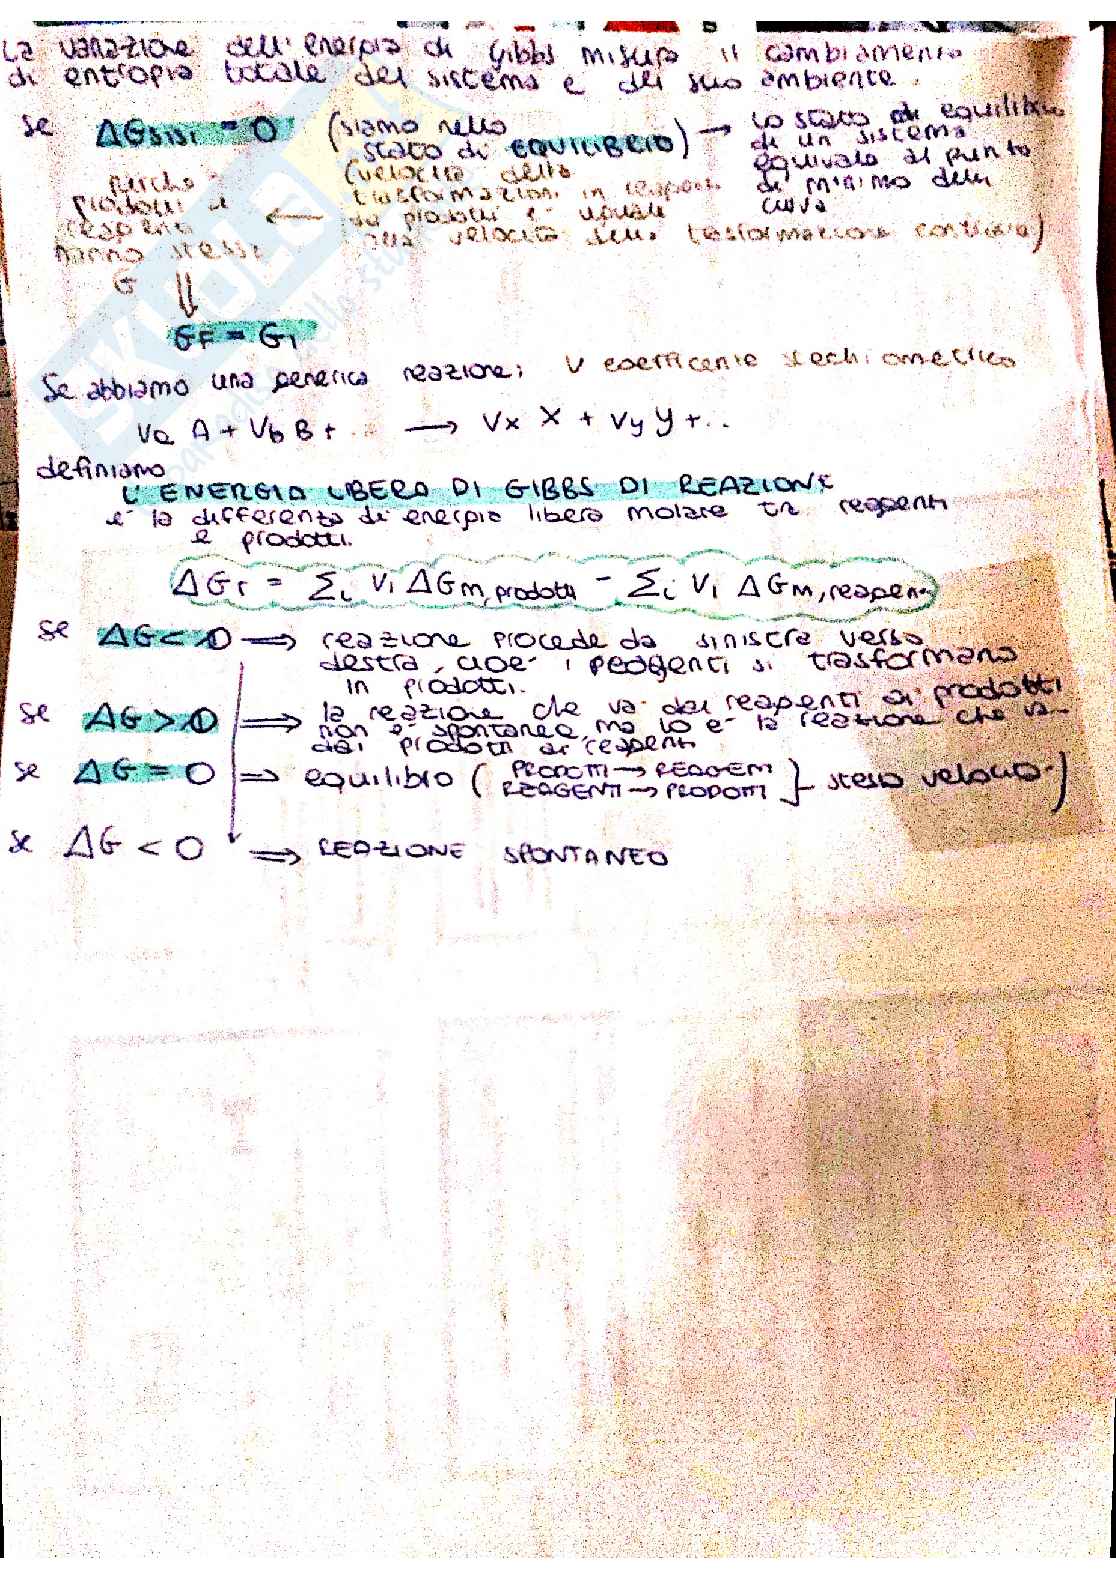 La variazione dell'energia di Gibbs misura il cambiamento
di entropia totale del sistema e del suo ambiente.
se ΔGsist = 0 (siamo nello
stato di EQUILIBRIO) → lo stato di equilibrio
di un sistema
equivale al punto
di minimo della
curva
(velocità della
trasformazione in reagenti
da prodotti è uguale
alla velocità della trasformazione contraria)
←
perché
prodotti e
reagenti
hanno stessa
G
⇓
GF = Gi
Se abbiamo una generica reazione: ν coefficente stechiometrico
νa A + νb B + .. → νx X + νy Y + ..
definiamo
L'ENERGIA LIBERA DI GIBBS DI REAZIONE
è la differenza di energia libera molare tra reagenti
e prodotti.
ΔGr = Σi νi ΔGm,prodotti - Σi νi ΔGm,reagenti
se ΔG < 0 ⟹ reazione procede da sinistra verso
destra, cioè i reagenti si trasformano
in prodotti.
se ΔG > 0 ⟹ la reazione che va dai reagenti ai prodotti
non è spontanea, ma lo è la reazione che va
dai prodotti ai reagenti
se ΔG = 0 ⟹ equilibro (PRODOTTI → REAGENTI
REAGENTI → PRODOTTI } stessa velocità)
se ΔG < 0 ⟹ REAZIONE SPONTANEA
SKUOLA